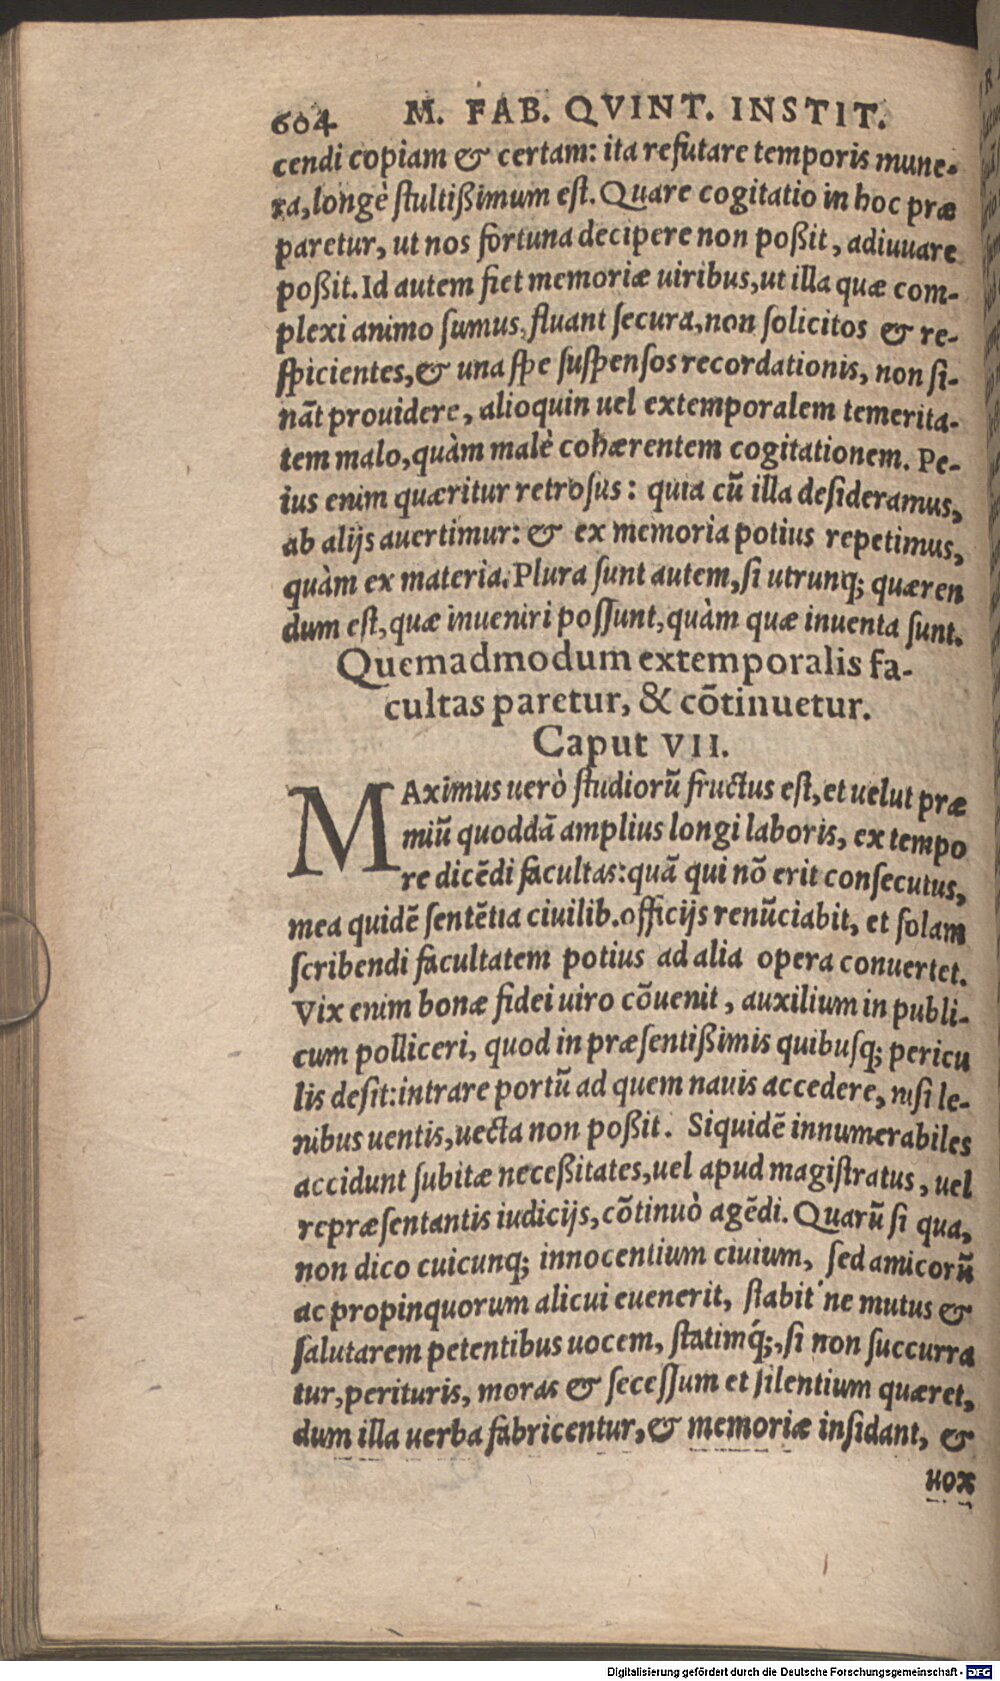 604 M. FAB. QVINT. INSTIT.
cendi copiam & certam: ita refutare temporis mune-
ra, longè ſtultiſſimum eſt. Quare cogitatio in hoc præ
paretur, ut nos fortuna decipere non poßit, adiuuare
poßit. Id autem fiet memoriæ uiribus, ut illa quæ com-
plexi animo ſumus, fluant ſecura, non ſolicitos & re-
ſpicientes, & una ſpe ſuſpenſos recordationis, non ſi-
nāt prouidere, alioquin uel extemporalem temerita-
tem malo, quàm malè cohærentem cogitationem. Pe-
ius enim quæritur retroſus: quia cū illa deſideramus,
ab alijs auertimur: & ex memoria potius repetimus,
quàm ex materia. Plura ſunt autem, ſi utrunq; quæren
dum eſt, quæ inueniri poſſunt, quàm quæ inuenta ſunt.
Quemadmodum extemporalis fa-
cultas paretur, & cōtinuetur.
Caput VII.
MAximus uerò ſtudiorū fructus eſt, et uelut præ
miū quoddā amplius longi laboris, ex tempo
re dicēdi facultas: quā qui nō erit conſecutus,
mea quidē ſentētia ciuilib. officijs renūciabit, et ſolam
ſcribendi facultatem potius ad alia opera conuertet.
Vix enim bonæ fidei uiro cōuenit, auxilium in publi-
cum polliceri, quod in præſentißimis quibuſq; pericu
lis deſit: intrare portū ad quem nauis accedere, niſi le-
nibus uentis, uecta non poßit. Siquidē innumerabiles
accidunt ſubitæ neceßitates, uel apud magiſtratus, uel
repræſentantis iudicijs, cōtinuò agēdi. Quarū ſi qua,
non dico cuicunq; innocentium ciuium, ſed amicorū
ac propinquorum alicui euenerit, ſtabit'ne mutus &
ſalutarem petentibus uocem, ſtatimq́;, ſi non ſuccurra
tur, perituris, moras & ſeceſſum et ſilentium quæret,
dum illa uerba fabricentur, & memoriæ inſidant, &
uox
Digitalisierung gefördert durch die Deutsche Forschungsgemeinschaft - DFG